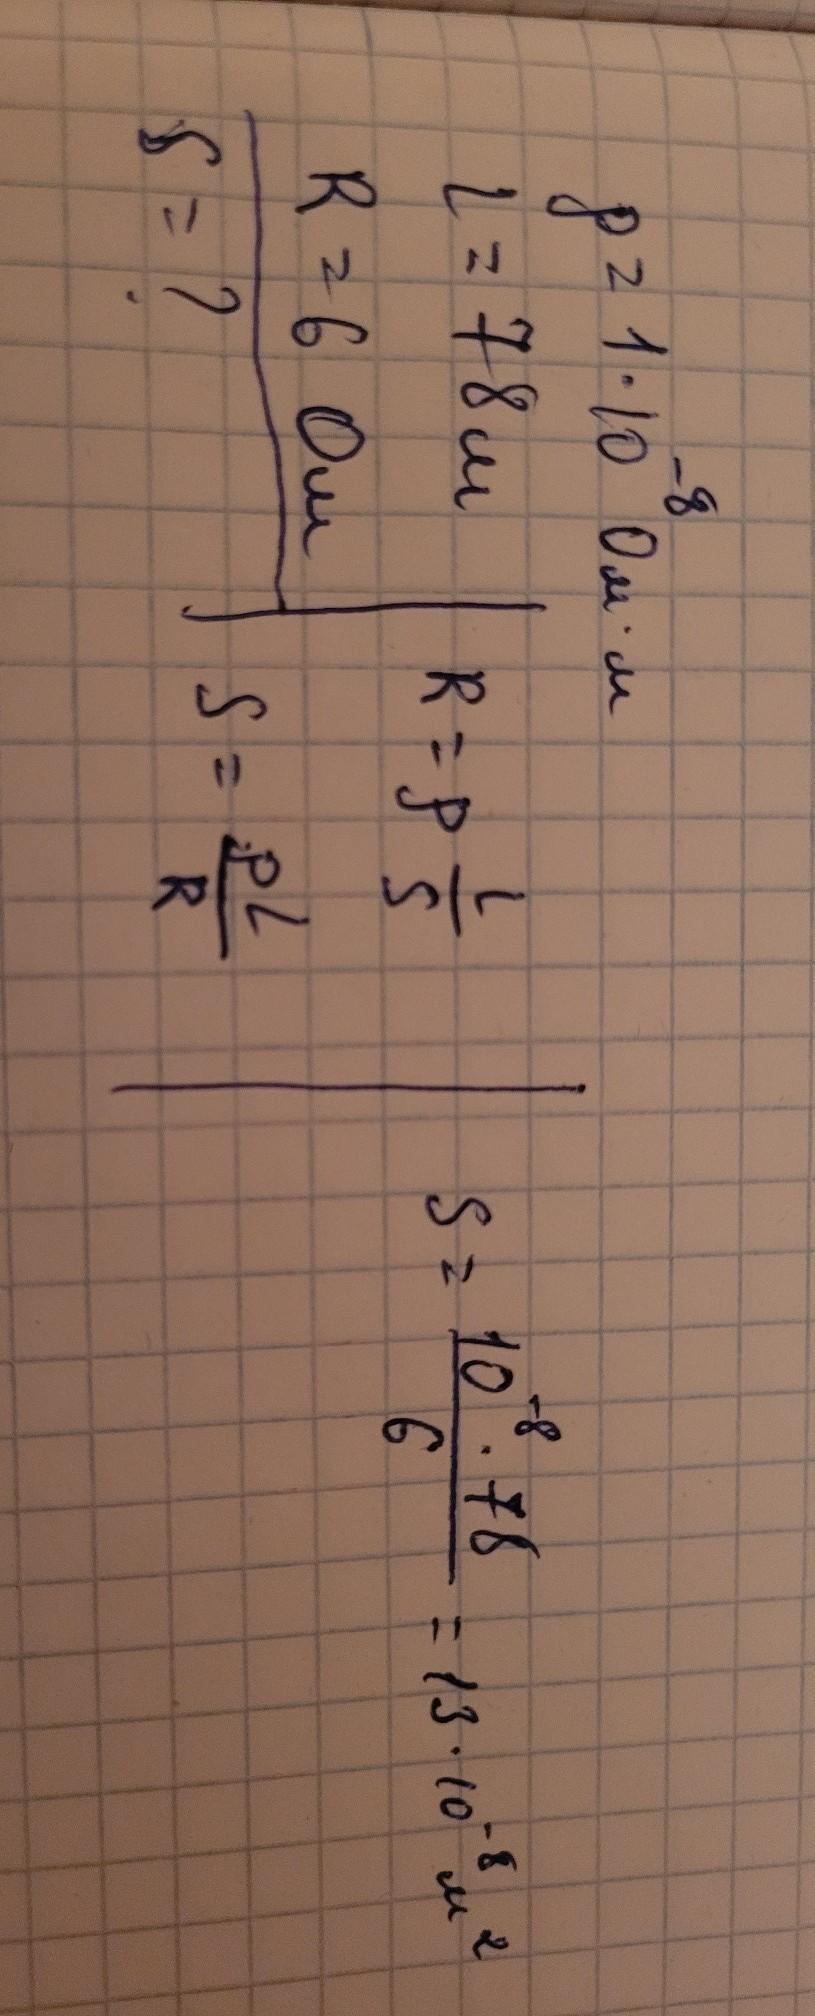 ρ = 1·10⁻⁸ Ом·м
l = 78м
R = 6 Ом
S = ?
R = ρ l/S
S = ρl/R
S = 10⁻⁸ · 78 / 6 = 13·10⁻⁸ м²